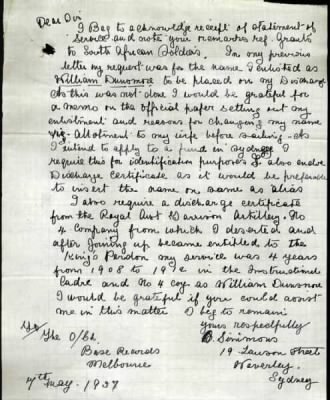 Dear Sir
I Beg to acknowledge receipt of statement of
Service and note your remarks ref. Grants
to South African Soldiers. In my previous
letter my request was for the name I enlisted as
William Dunsmore to be placed on my Discharge
As this was not done I would be grateful for
a memo on the official paper setting out my
enlistment and reasons for changing my name
viz - Allotment to my wife before sailing - As
I intend to apply to a fund in Sydney I
require this for identification purposes I also enclose
Discharge Certificate as it would be preferable
to insert the name on same as alias
I also require a discharge certificate
from the Royal Aust Garrison Artillery. No
4 Company from which I deserted and
after joining up became entitled to the
King's Pardon my service was 4 years
from 1908 to 1912 in the Instructional
Cadre and No 4 coy. as William Dunsmore
I would be grateful if you could assist
me in this matter I beg to remain
yours respectfully
Simmons
To The O/ch.
19 Lawson Street
Base Records
Waverley.
Melbourne
Sydney
May. 1937